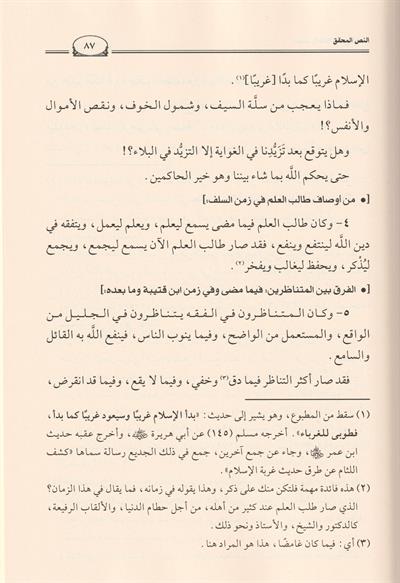 النص المحقق
٨٧
الإسلام غريبًا كما بدًا [غريبًا](١).
فماذا يعجب من سلَّة السيف، وشمول الخوف، ونقص الأموال
والأنفس؟!
وهل يتوقع بعد تَزَيُّدِنا في الغواية إلا التزيُّد في البلاء؟!
حتى يحكم اللَّه بما شاء بيننا وهو خير الحاكمين.
[• من أوصاف طالب العلم في زمن السلف:]
٤- وكان طالب العلم فيما مضى يسمع ليعلم، ويعلم ليعمل، ويتفقه في
دين اللَّه لينتفع وينفع، فقد صار طالب العلم الآن يسمع ليجمع، ويجمع
ليُذْكر، ويحفظ ليغالب ويفخر(٢).
[• الفرق بين المتناظرين: فيما مضى وفي زمن ابن قتيبة وما بعده:]
٥- وكان المتناظرون في الفقه يتناظرون في الجليل من
الواقع، والمستعمل من الواضح، وفيما ينوب الناس، فينفع اللَّه به القائل
والسامع.
فقد صار أكثر التناظر فيما دق(٣) وخفي، وفيما لا يقع، وفيما قد انقرض،
(١) سقط من المطبوع، وهو يشير إلى حديث: «بدأ الإسلام غريبًا وسيعود غريبًا كما بدأ،
فطوبى للغرباء». أخرجه مسلم (١٤٥) عن أبي هريرة رضي الله عنه، وأخرج عقبه حديث
ابن عمر رضي الله عنهما، وجاء عن جمع آخرين، جمع في ذلك الجديع رسالة سماها «كشف
اللثام عن طرق حديث غربة الإسلام».
(٢) هذه فائدة مهمة فلتكن منك على ذكر، وهذا يقوله في زمانه، فما يقال في هذا الزمان؟
الذي صار طلب العلم عند كثير من أهله، من أجل حطام الدنيا، والألقاب الرفيعة،
كالدكتور والشيخ، والأستاذ ونحو ذلك.
(٣) أي: فيما كان غامضًا، هذا هو المراد هنا.